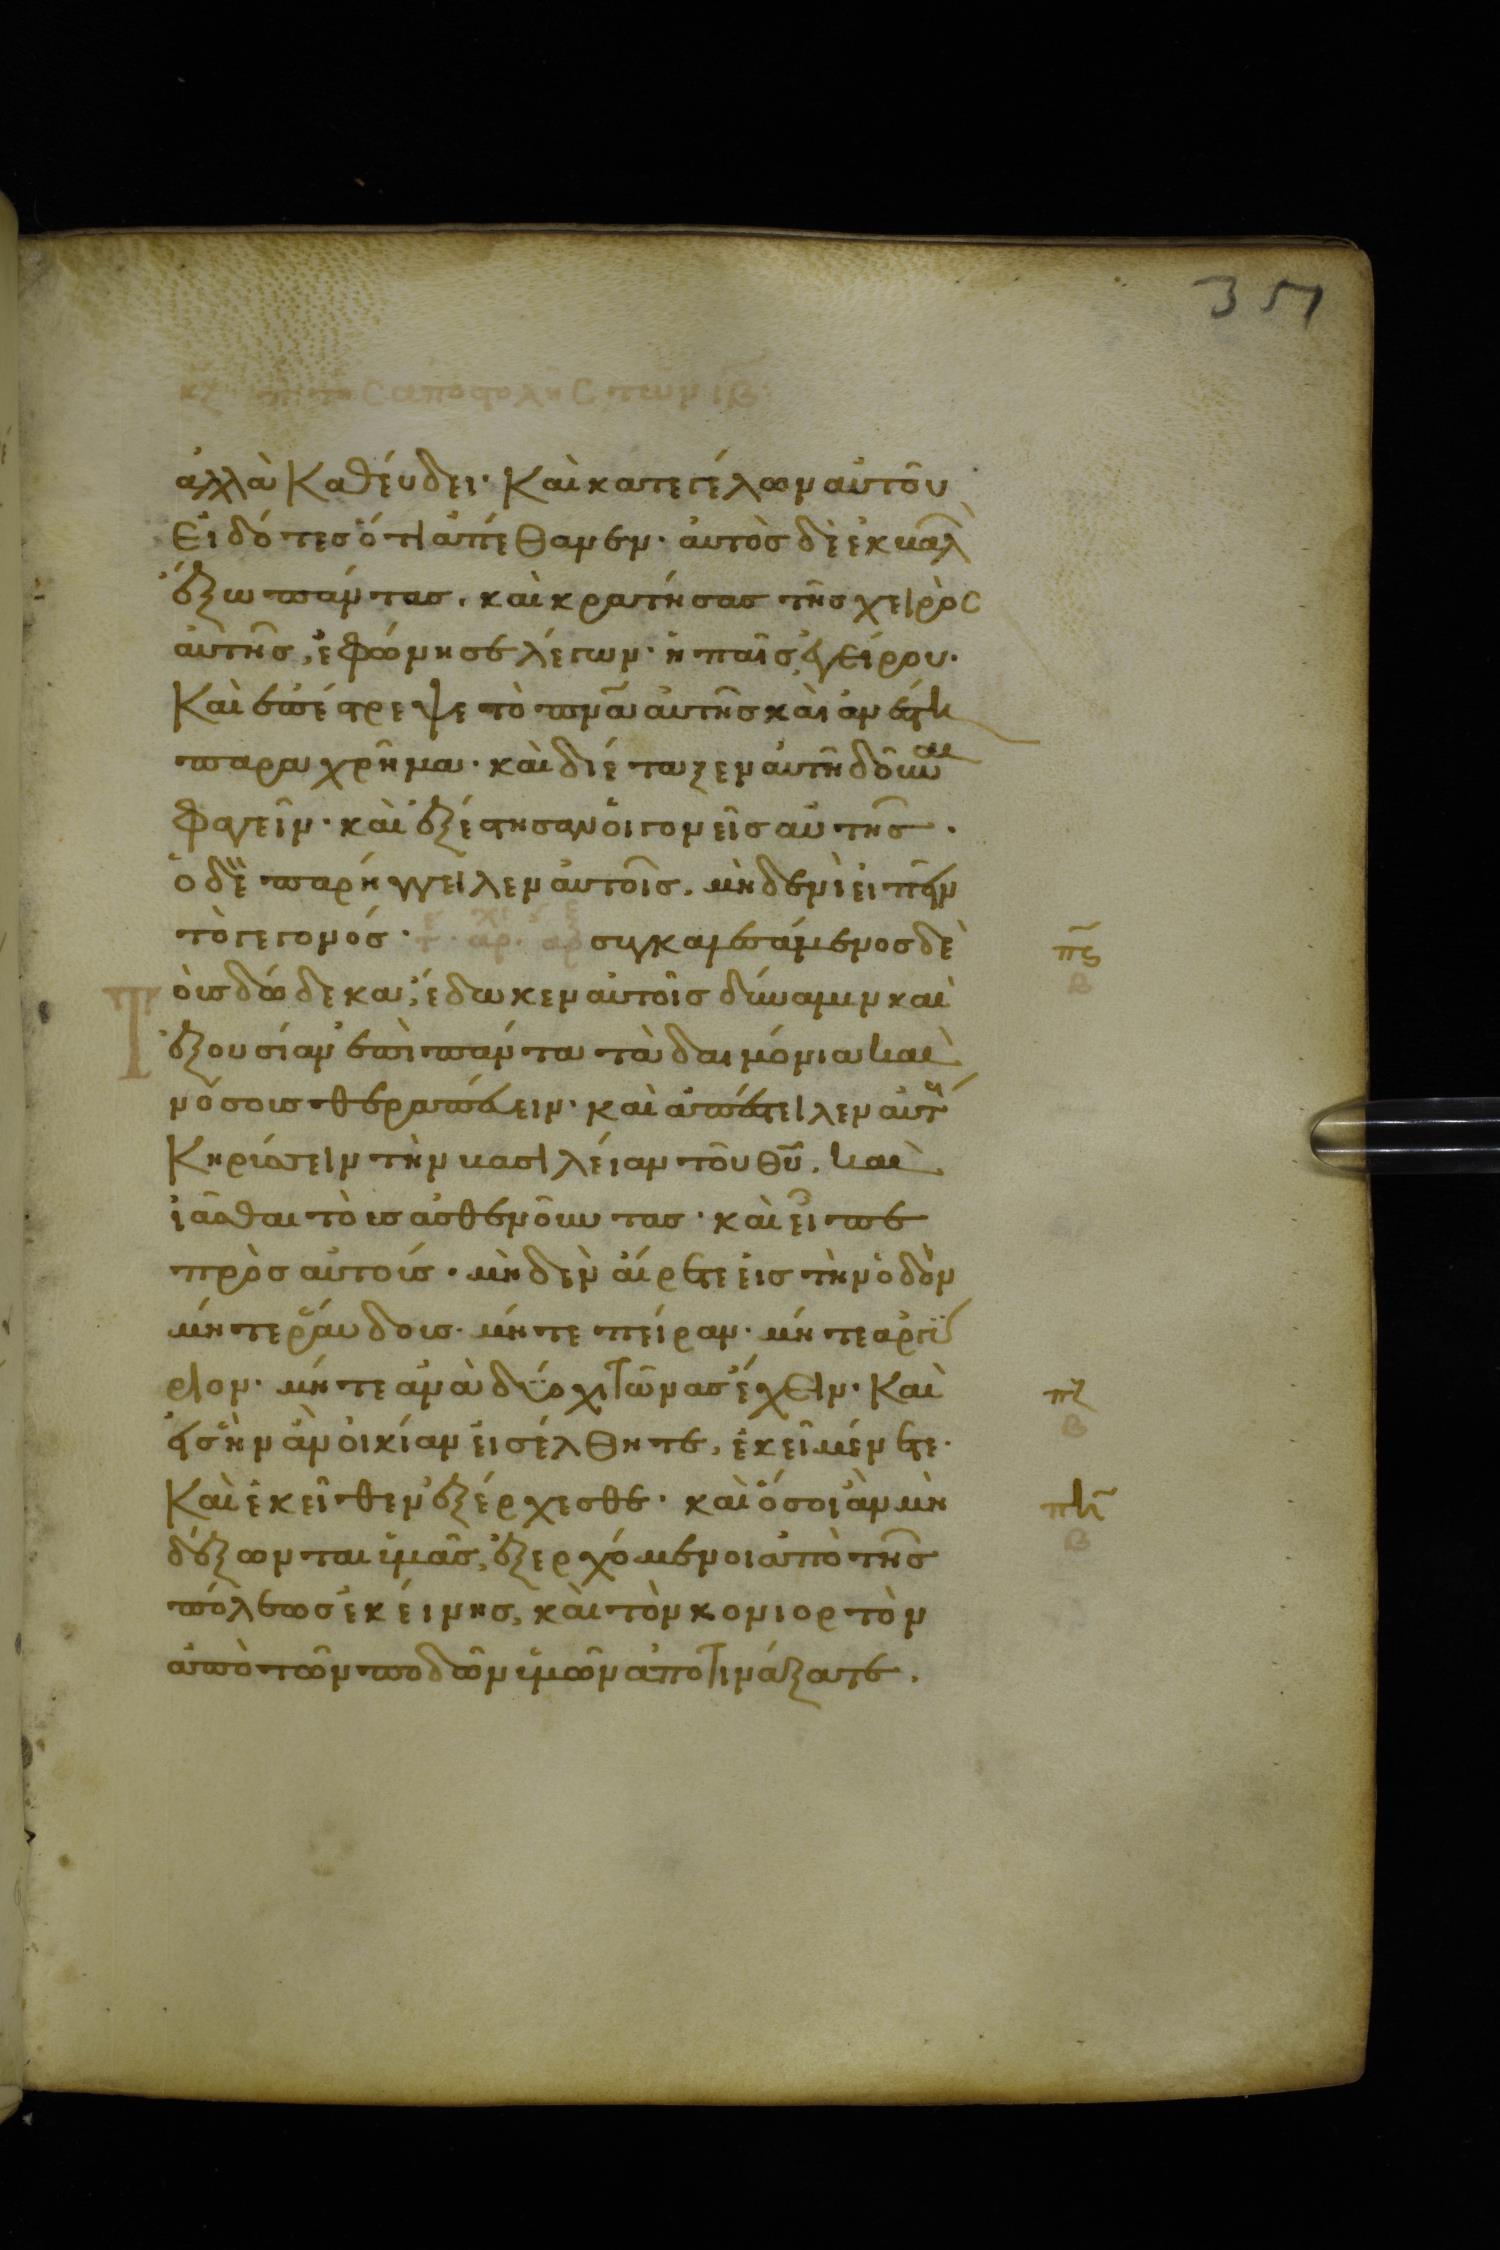 351
κζ π τησ αποστολησ των ιβ
ἀλλὰ Καθέυδει· Καὶ κατεγέλων αὐτοῦ
Εἰδότεσ ὅτι ἀπέθανεν· ἀυτὸσ δὲ ἐκβαλὼ
ἔξω πάντασ, καὶ κρατήσασ τῆσ χειρὸσ
ἀυτῆσ, ἐφώνησε λέγων· ἡ παῖσ ἐγείρου·
Καὶ ἐπέστρεψε τὸ πνα ἀυτῆσ καὶ ἀνέστη
παραχρῆμα· καὶ διέταξεν ἀυτῆ δοῦναι
φαγεῖν· καὶ ἐξέστησαν ὁι γονεῖσ αὐτῆσ·
ὁ δὲ παρήγγειλεν ἀυτοῖσ, μὴδενὶ ἐιπεῖν
τὸ γεγονόσ· τ. αρ. συγκαλεσάμενοσ δὲ
πϛ
β
Τ ὁυσ δώδεκα, ἔδωκεν αυτοῖσ δύναμιν καὶ
ἐξουσίαν ἐπὶ πάντα τὰ δαιμόνια καὶ
νόσουσ θεραπέυειν· καὶ ἀπέστειλεν αυτοὺ
Κηρύσσειν τὴν βασιλείαν τοῦ θυ, καὶ
ἰᾶσθαι τὸυσ ἀσθενοῦντασ· καὶ εἶπε
πρὸσ αὐτούσ· μὴδὲν ἄιρετε ἐισ τὴν ὁδὸν
μήτε ῥάυδουσ· μήτε πείραν· μήτε αργύ
ριον· μήτε ἀνὰ δύο χιτῶνασ ἔχειν· Καὶ
πζ
β
ἐισ ἣν ἂν ὀικίαν ἐισέλθητε, ἐκεῖ μένετε·
Καὶ ἐκεῖθεν ἐξέρχεσθε· καὶ ὅσοι ἀν μὴ
πη
β
δέξωνται ὑμᾶσ, ἐξερχόμενοι ἀπὸ τῆσ
πόλεωσ ἐκέινησ, καὶ τὸν κονιορτὸν
ἀπὸ τῶν ποδῶν ὑμῶν ἀποτινάξατε.